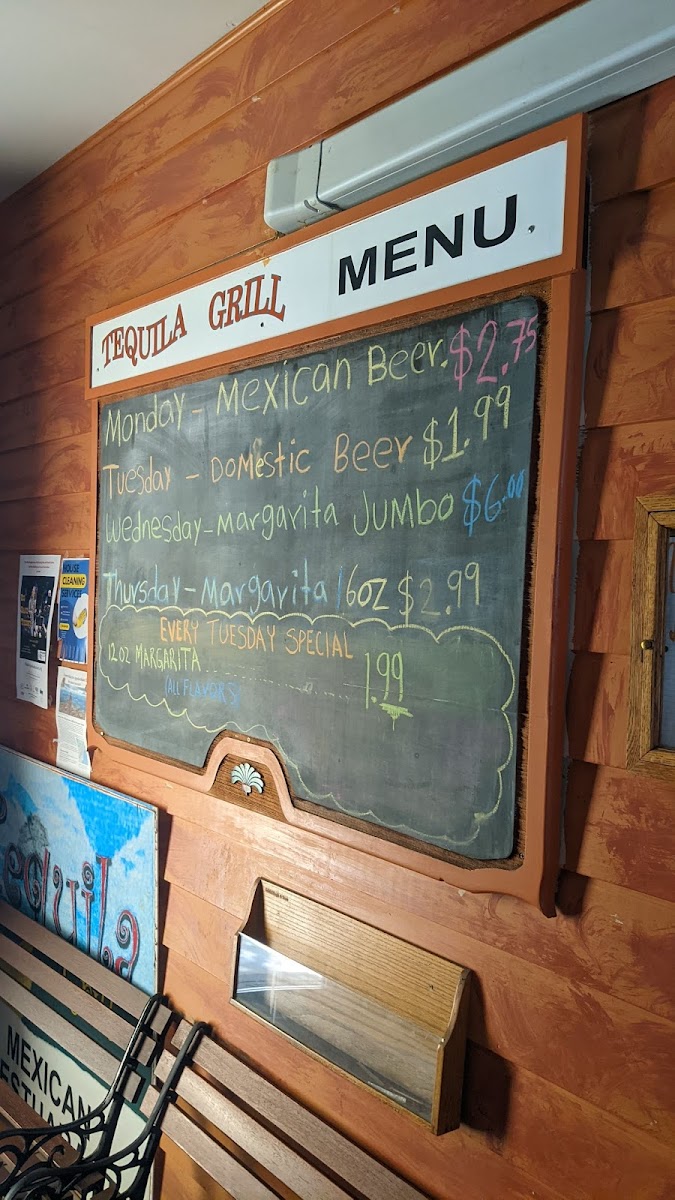 TEQUILA GRILL MENU
Monday - Mexican Beer. $2.75
Tuesday - Domestic Beer $1.99
Wednesday - margarita JUMBO $6.00
Thursday - Margarita 16oz $2.99
EVERY TUESDAY SPECIAL
12 OZ MARGARITA 1.99
(ALL FLAVORS)
HOUSE
CLEANING
SERVICES
Tequila
MEXICAN